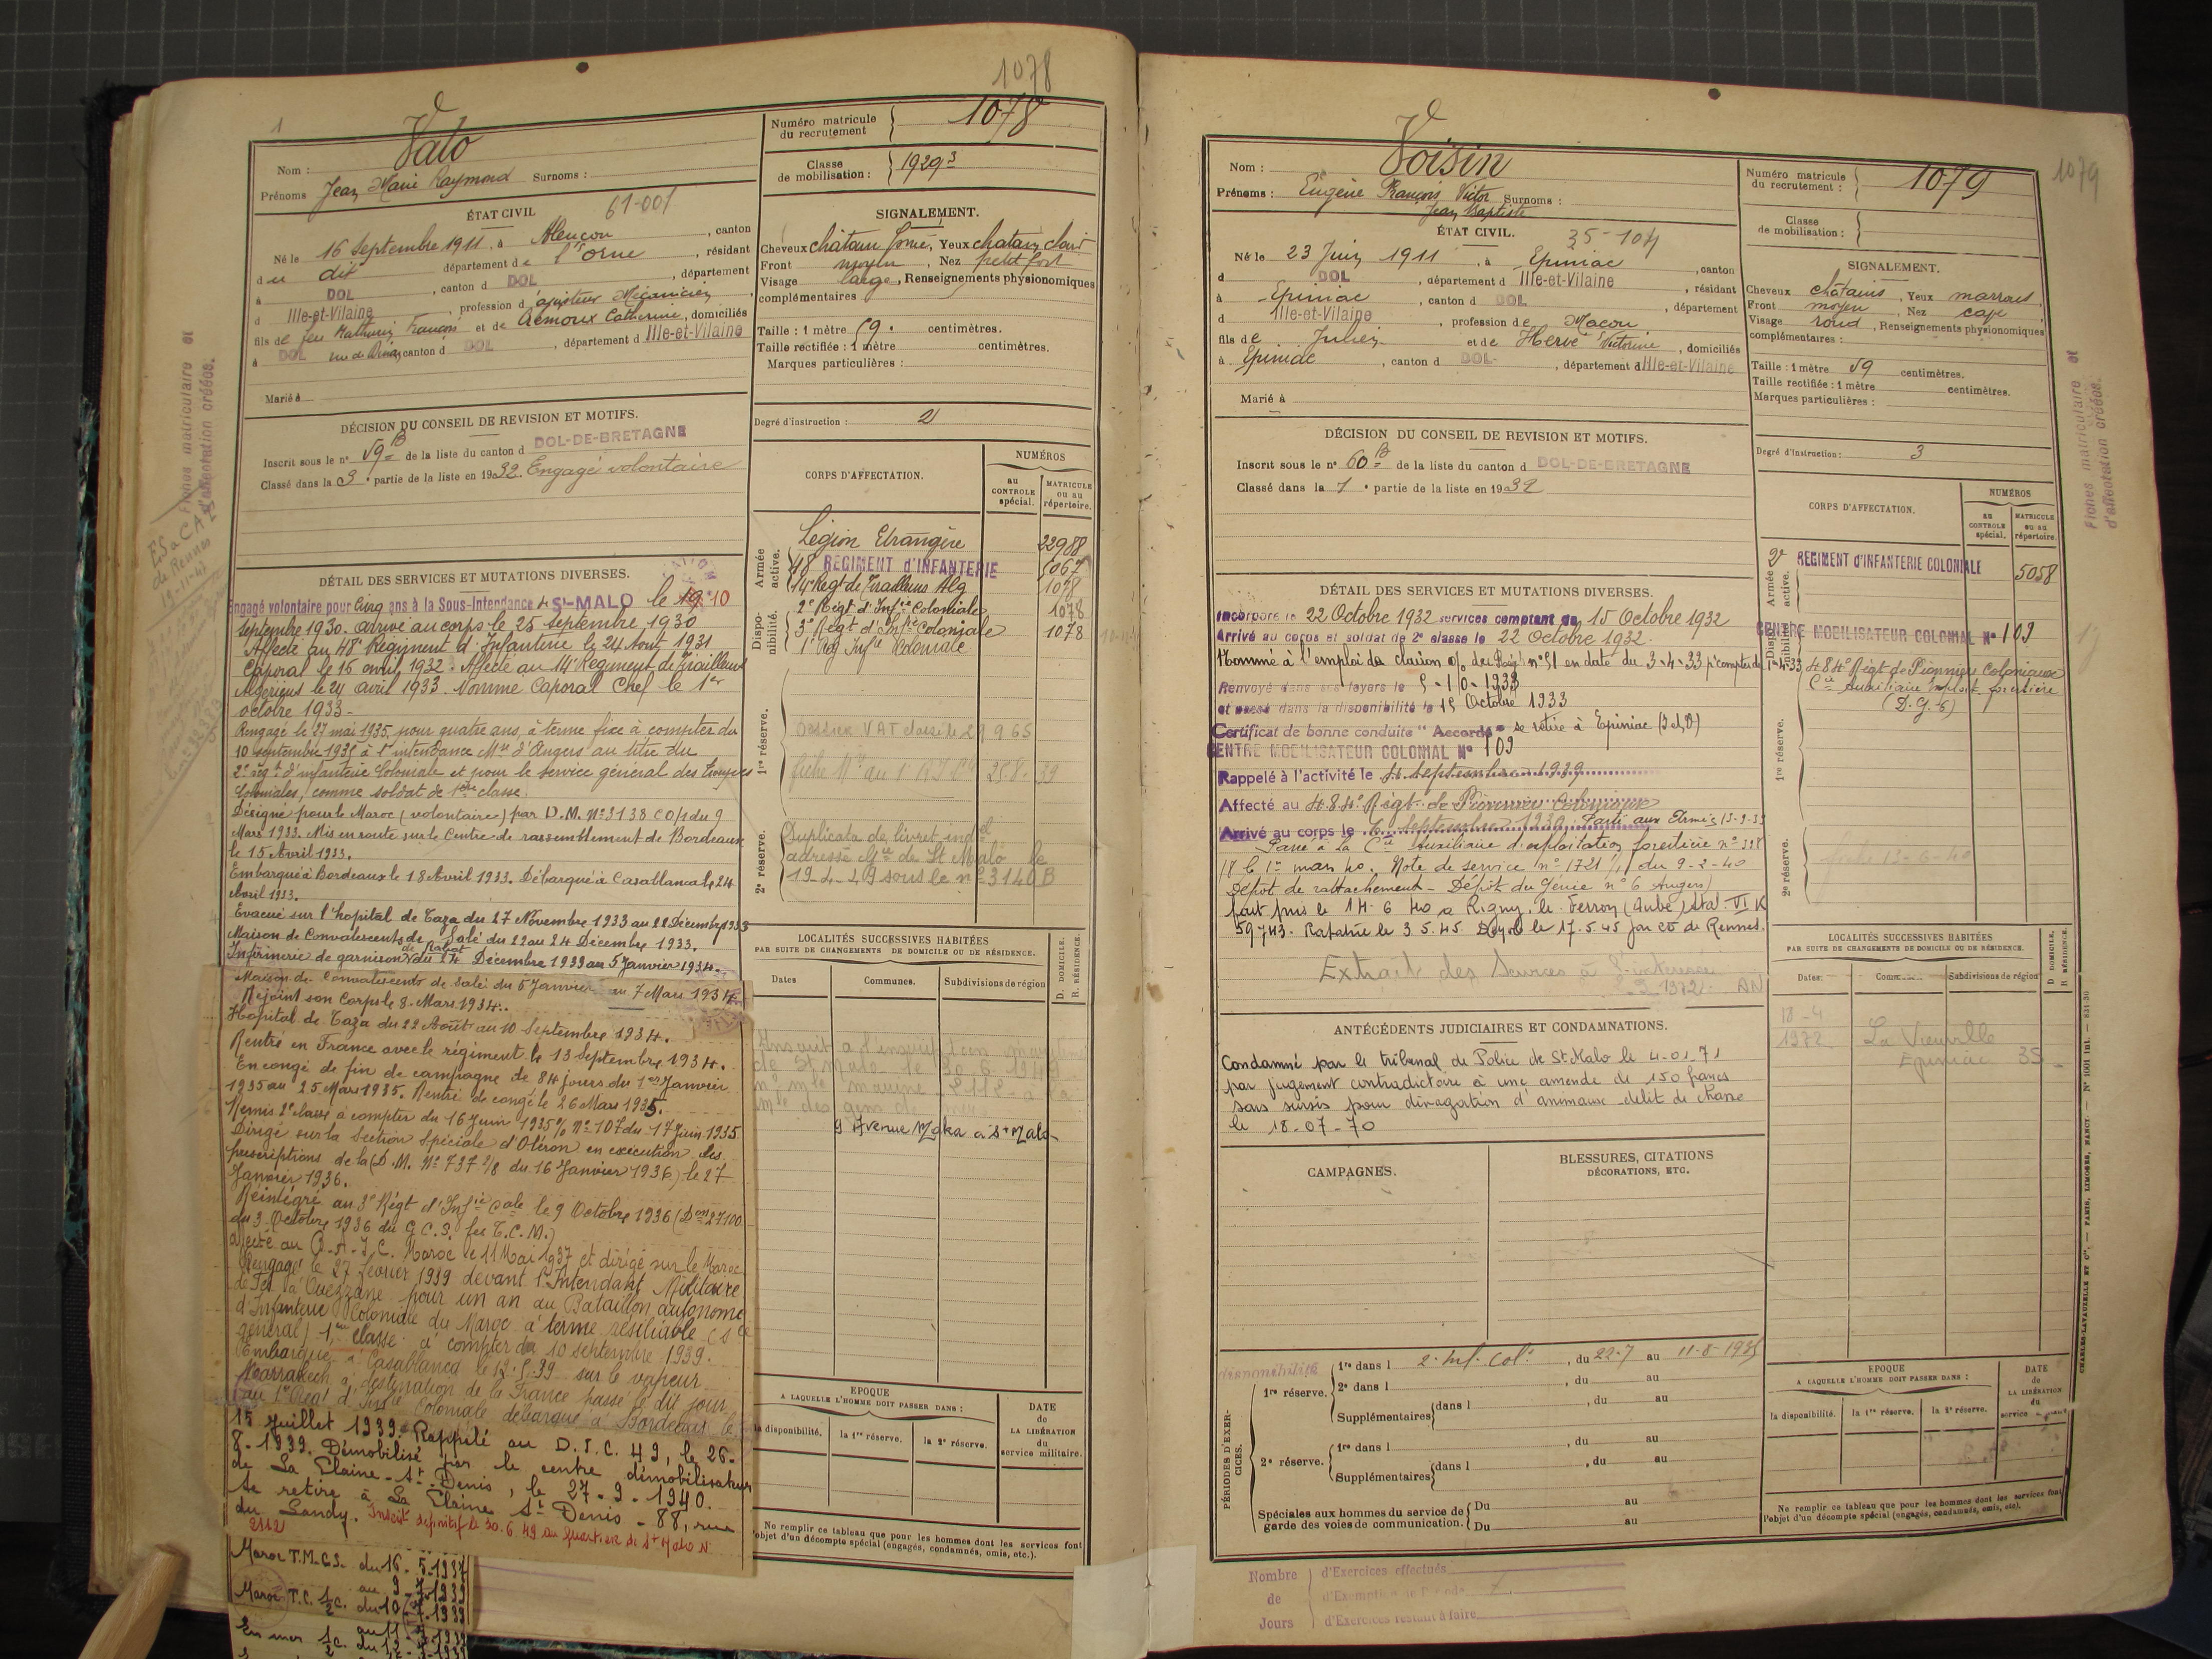 1078
1
Nom : Valo
Prénoms Jean Marie Raymond Surnoms :
ÉTAT CIVIL 61-001
Né le 16 Septembre 1911, à Alençon, canton
du dit département de l'Orne, résidant
à DOL, canton d DOL, département
d Ille-et-Vilaine, profession d'ajusteur Mécanicien,
fils de feu Mathurin François et de Catherine, domiciliés
à DOL, canton d DOL, département d Ille-et-Vilaine
Marié à
DÉCISION DU CONSEIL DE REVISION ET MOTIFS.
Inscrit sous le n° 59 B de la liste du canton d DOL-DE-BRETAGNE
Classé dans la 3e partie de la liste en 1932. Engagé volontaire
DÉTAIL DES SERVICES ET MUTATIONS DIVERSES.
Engagé volontaire pour cinq ans à la Sous-Intendance de St-MALO le 10
septembre 1930. arrivé au corps le 25 septembre 1930
Affecté au 48e Régiment d'Infanterie le 24 Août 1931
Caporal le 16 avril 1932. Affecté au 14e Régiment de Tirailleurs
Algériens le 24 avril 1933. Nommé Caporal Chef le 1er
octobre 1933-
Rengagé le 27 mai 1935, pour quatre ans, à terme fixe à compter du
10 septembre 1935 à l'intendance Mre d'Angers au titre du
2e régt d'infanterie Coloniale et pour le service général des troupes
Coloniales, comme soldat de classe.
Désigné pour le Maroc (volontaire) par D.M. N° 3138 CO/1 du 9
Mars 1933. Mis en route sur le Centre de rassemblement de Bordeaux
le 15 Avril 1933.
Embarqué à Bordeaux le 18 Avril 1933. Débarqué à Casablanca le 24
Avril 1933.
Evacué sur l'hôpital de Taza du 27 Novembre 1933 au 22 Décembre 1933
Maison de Convalescents de Salé du 22 au 24 Décembre 1933.
Infirmerie de garnison de Rabat du 24 Décembre 1933 au 5 Janvier 1934.
Maison de Convalescents de Salé du 5 Janvier au 7 Mars 1934.
Rejoint son Corps le 8 Mars 1934.
Hôpital de Taza du 22 Août au 10 Septembre 1934.
Rentré en France avec le régiment le 13 Septembre 1934.
En congé de fin de campagne de 84 jours du 1er Janvier
1935 au 25 Mars 1935. Rentré de congé le 26 Mars 1935.
Remis 2e classe à compter du 16 Juin 1935 % N° 107 du 17 Juin 1935
Dirigé sur la Section Spéciale d'Oléron en exécution des
prescriptions de la (D.M. N° 737 2/8 du 16 Janvier 1936) le 27
Janvier 1936.
Réintégré au 3e Régt d'Infie Cale le 9 Octobre 1936 (Don 27100
du 3 Octobre 1936 du G.C.S. des T.C.M.)
Affecté au B.A.I.C. Maroc le 11 Mai 1937 et dirigé sur le Maroc
Rengagé le 27 février 1939 devant l'Intendant Militaire
de Fès à Ouezzane pour un an au Bataillon autonome
d'Infanterie Coloniale du Maroc à terme résiliable (
général) 1ère classe à compter du 10 septembre 1939.
Embarqué à Casablanca le 12.5.39 sur le vapeur
Marrakech à destination de la France passé le dit jour
au 1er Régt d'Infie Coloniale débarqué à Bordeaux le
15 Juillet 1939. Rappelé au D.I.C. 49, le 26-
8-1939. Démobilisé par le centre démobilisateur
de La Plaine-St-Denis, le 27-9-1940.
Se retire à La Plaine St Denis - 88, rue
du Landy. Inscrit définitif le 30.6.49 au quartier de St Malo N°
2112
Maroc T.M.G.S. du 16. 5.1937
au 9 7.1939
Maroc T.C. ½c. du 10.7.1939
au 11.7.1939
En mer ½c. du 12.7.1939
Numéro matricule du recrutement 1078
Classe de mobilisation : 1929 3
SIGNALEMENT.
Cheveux châtain foncé, Yeux châtain clair
Front moyen, Nez petit fort
Visage large, Renseignements physionomiques
complémentaires
Taille : 1 mètre 69 centimètres.
Taille rectifiée : 1 mètre centimètres.
Marques particulières :
Degré d'instruction : 2
CORPS D'AFFECTATION.
NUMÉROS
au CONTROLE spécial.
MATRICULE ou au répertoire.
Armée active.
Légion Etrangère 22988
48 REGIMENT d'INFANTERIE 6067
14e Régt de Tirailleurs Alg 1078
Disponibilité.
2e Régt d'Infie Coloniale 1078
3e Régt d'Infie Coloniale 1078
1er Rég Infie Coloniale
1re réserve.
Dossier VAT classé le 29 9 65
2e réserve.
Duplicata de livret indel
adressé Gie de St Malo le
19-4-49 sous le n° 3140B
LOCALITÉS SUCCESSIVES HABITÉES
PAR SUITE DE CHANGEMENTS DE DOMICILE OU DE RÉSIDENCE.
D. DOMICILE. R. RÉSIDENCE.
Dates Communes. Subdivisions de région
9 Avenue Moka à St Malo
EPOQUE
A LAQUELLE L'HOMME DOIT PASSER DANS :
DATE de LA LIBÉRATION du service militaire.
la disponibilité. la 1re réserve. la 2e réserve.
Ne remplir ce tableau que pour les hommes dont les services font
l'objet d'un décompte spécial (engagés, condamnés, omis, etc.).
Fiches matriculaire et
d'affectation créées.
1079
Nom : Voisin
Prénoms : Eugène François Victor Surnoms :
Jean Baptiste
ÉTAT CIVIL. 35-104
Né le 23 Juin 1911, à Epiniac, canton
d DOL, département d Ille-et-Vilaine, résidant
à Epiniac, canton d DOL, département
d Ille-et-Vilaine, profession de Maçon
fils de Julien et de Hervé Victorine, domiciliés
à Epiniac, canton d DOL, département d Ille-et-Vilaine
Marié à
DÉCISION DU CONSEIL DE REVISION ET MOTIFS.
Inscrit sous le n° 60 B de la liste du canton d DOL-DE-BRETAGNE
Classé dans la 1e partie de la liste en 1932
DÉTAIL DES SERVICES ET MUTATIONS DIVERSES.
Incorporé le 22 Octobre 1932 services comptant du 15 Octobre 1932
Arrivé au corps et soldat de 2e classe le 22 Octobre 1932.
Nommé à l'emploi de clairon % du Régt n° 51 en date du 3-4-33 pr compter du 1-4-33
Renvoyé dans ses foyers le 5-10-1933
et passé dans la disponibilité le 15 Octobre 1933
Certificat de bonne conduite "Accordé" se retire à Epiniac (I et V)
CENTRE MOBILISATEUR COLONIAL N° 109
Rappelé à l'activité le 4 septembre 1939
Affecté au 484e Régt de Pionniers Coloniaux
Arrivé au corps le 6 Septembre 1939. Parti aux Armées 13-9-39
Passé à la Cie Auxiliaire d'exploitation forestière
le 1er mars 40. Note de service n° 1721/1 du 9-2-40
Dépôt de rattachement - Dépôt du Génie n° 6 Angers
fait pris le 14-6 40 à Rigny le Ferron (Aube) Stal. VI K
59743. Rapatrié le 3.5.45 le 17.5.45 par CD de Rennes.
Extrait des Services à l'intéressé
1972 AN
ANTÉCÉDENTS JUDICIAIRES ET CONDAMNATIONS.
Condamné par le tribunal de Police de St Malo le 4-01-71
par jugement contradictoire à une amende de 150 francs
sans sursis pour divagation d'animaux délit de chasse
le 18-07-70
CAMPAGNES.
BLESSURES, CITATIONS
DÉCORATIONS, ETC.
PÉRIODES D'EXERCICES.
disponibilité
1re réserve. 1re dans l 2e Inf. Cole, du 22-7 au 11-8-1935
2e dans l , du au
Supplémentaires dans l , du au
2e réserve. 1re dans l , du au
Supplémentaires dans l , du au
Spéciales aux hommes du service de garde des voies de communication. Du au
Du au
Nombre de Jours
d'Exercices effectués
d'Exercices restant à faire
Numéro matricule du recrutement : 1079
Classe de mobilisation :
SIGNALEMENT.
Cheveux châtains, Yeux marrons,
Front moyen, Nez cave
Visage rond, Renseignements physionomiques
complémentaires :
Taille : 1 mètre 59 centimètres.
Taille rectifiée : 1 mètre centimètres.
Marques particulières :
Degré d'instruction : 3
CORPS D'AFFECTATION.
NUMÉROS
au CONTROLE spécial.
MATRICULE ou au répertoire.
Armée active.
2e REGIMENT d'INFANTERIE COLONIALE 5058
Disponibilité.
CENTRE MOBILISATEUR COLONIAL N° 109
484e Régt de Pionniers Coloniaux
Cie Auxiliaire exploit. forestière
(D.G. 6)
1re réserve.
2e réserve.
LOCALITÉS SUCCESSIVES HABITÉES
PAR SUITE DE CHANGEMENTS DE DOMICILE OU DE RÉSIDENCE.
D. DOMICILE R. RÉSIDENCE.
Dates Communes Subdivisions de région
18-4
1972 La Vieuville
Epiniac 35
EPOQUE
A LAQUELLE L'HOMME DOIT PASSER DANS :
DATE de LA LIBÉRATION du service
la disponibilité. la 1re réserve. la 2e réserve.
Ne remplir ce tableau que pour les hommes dont les services font
l'objet d'un décompte spécial (engagés, condamnés, omis, etc).
Fiches matriculaire et
d'affectation créées.
1079
CHARLES-LAVAUZELLE ET Cie. — PARIS, LIMOGES, NANCY. — N° 1001 int. — 831-30